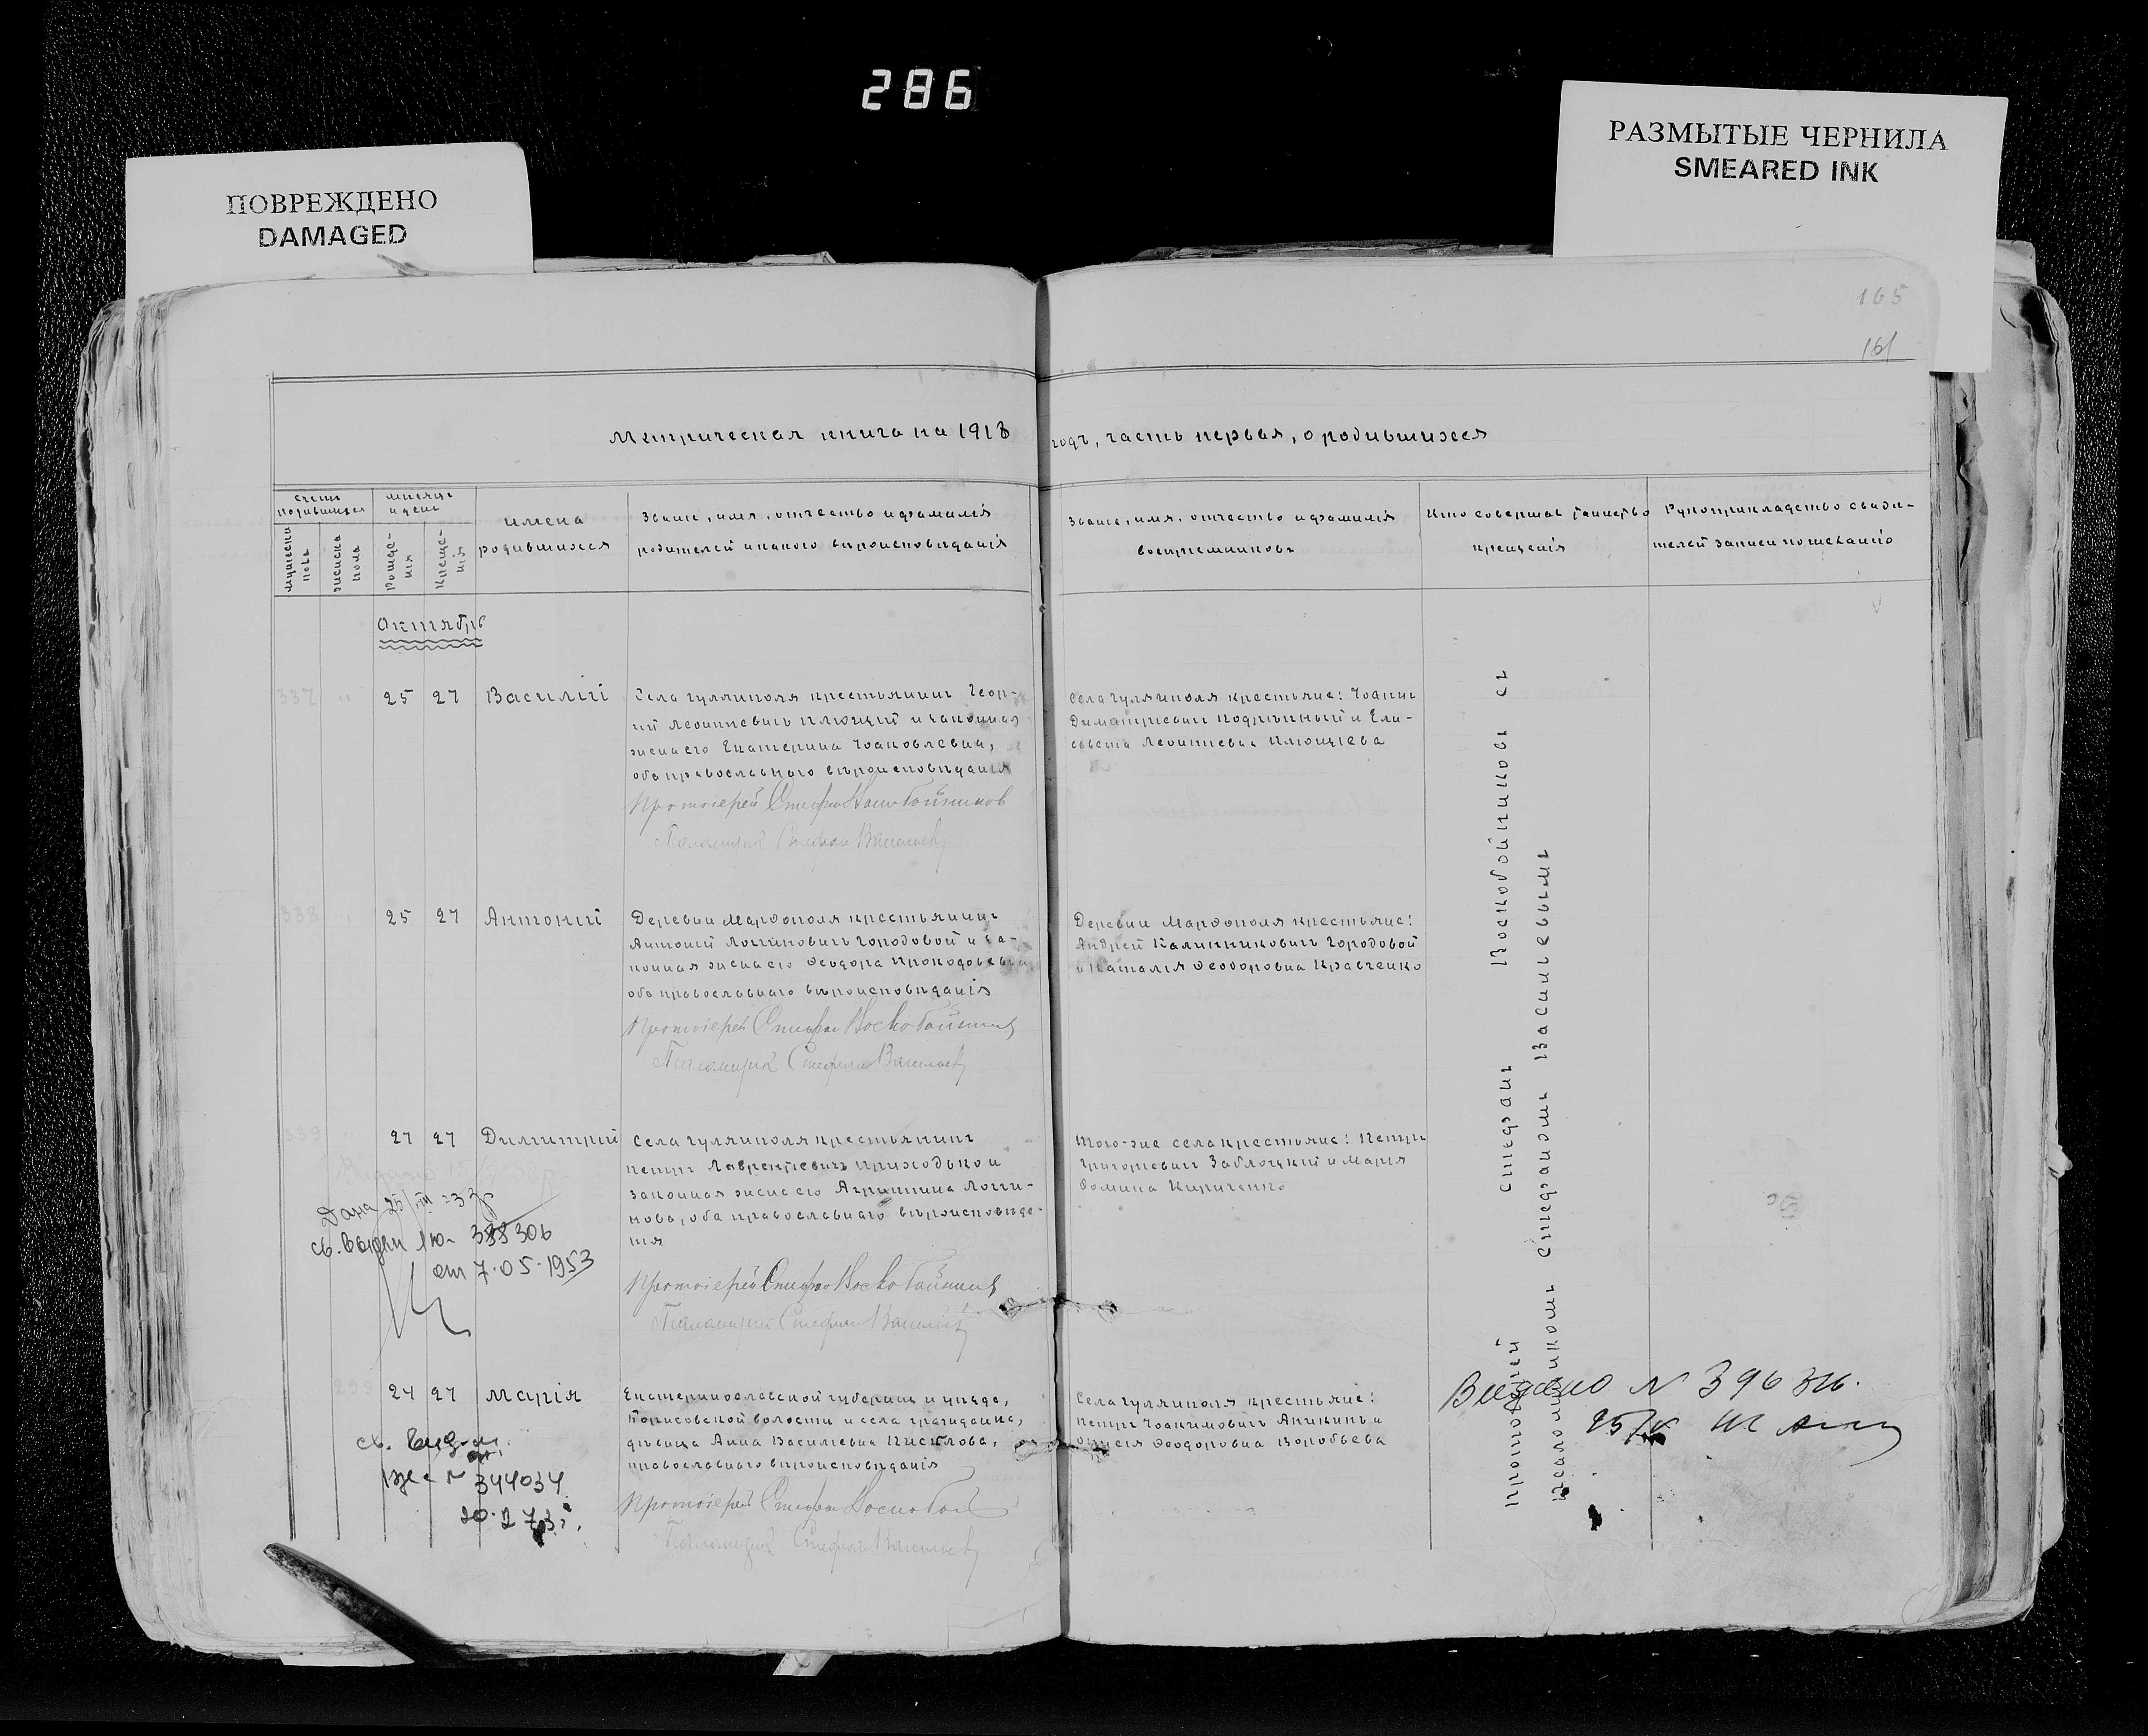 286
ПОВРЕЖДЕНО
DAMAGED
РАЗМЫТЫЕ ЧЕРНИЛА
SMEARED INK
165
161
Метрическая книга на 1918 годъ, часть первая, о родившихся
счетъ родившихся
мѣсяцъ и день
имена родившихся
Званіе, имя, отчество и фамилія
родителей и какого вѣроисповѣданія
Званіе, имя, отчество и фамилія
воспріемниковъ
Кто совершал таинство
крещенія
Рукоприкладство свидѣ-
телей записи по желанію
мужеска пола
женска пола
рожде-
нія
креще-
нія
Октябрь
337 " 25 27 Василій
Села Гуляйполя крестьянинъ Геор-
гій Леонтіевичъ Клюцкій и законная
жена его Екатерина Іоаковлевна,
оба православнаго вѣроисповѣданія
Протоіерей Стефан Воскобойников
Псаломщик Стефан Васильев
Села Гуляйполя крестьяне: Іоаннъ
Димитріевич Подлѣпный и Ели-
савета Леонтіевна Клюцкева
338 " 25 27 Антоній
Деревни Марфополя крестьянинъ
Антоній Логиновичъ Городовой и за-
конная жена его Феодора Прокофьевна
оба православнаго вѣроисповѣданія
Протоіерей Стефан Воскобойников
Псаломщик Стефан Васильев
Деревни Марфополя крестьяне:
Андрей Калинникович Городовой
и Наталія Феодоровна Кравченко
339 " 27 27 Димитрій
Села Гуляйполя крестьянинъ
Петръ Лаврентіевичъ Приходько и
законная жена его Агриппина Логги-
нова, оба православнаго вѣроисповѣда-
нія
Протоіерей Стефан Воскобойников
Псаломщик Стефан Васильев
Того-же села крестьяне: Петръ
Григоріевич Заблоцкій и Марія
Фомина Кириченко
338306
от 7.05.1953
299 24 27 Марія
Екатеринославской губерніи и уѣзда,
Борисовской волости и села гражданка,
дѣвица Анна Василіевна Киселова,
православнаго вѣроисповѣданія
Протоіерей Стефан Воскобой
Псаломщик Стефан Васильев
Села Гуляйполя крестьяне:
Петръ Іоакимовичъ Аникинъ и
Феодоровна Воробьева
344034
Протоіерей Стефанъ Воскобойниковъ съ
псаломщикомъ Стефаномъ Васильевымъ
Видано N 396